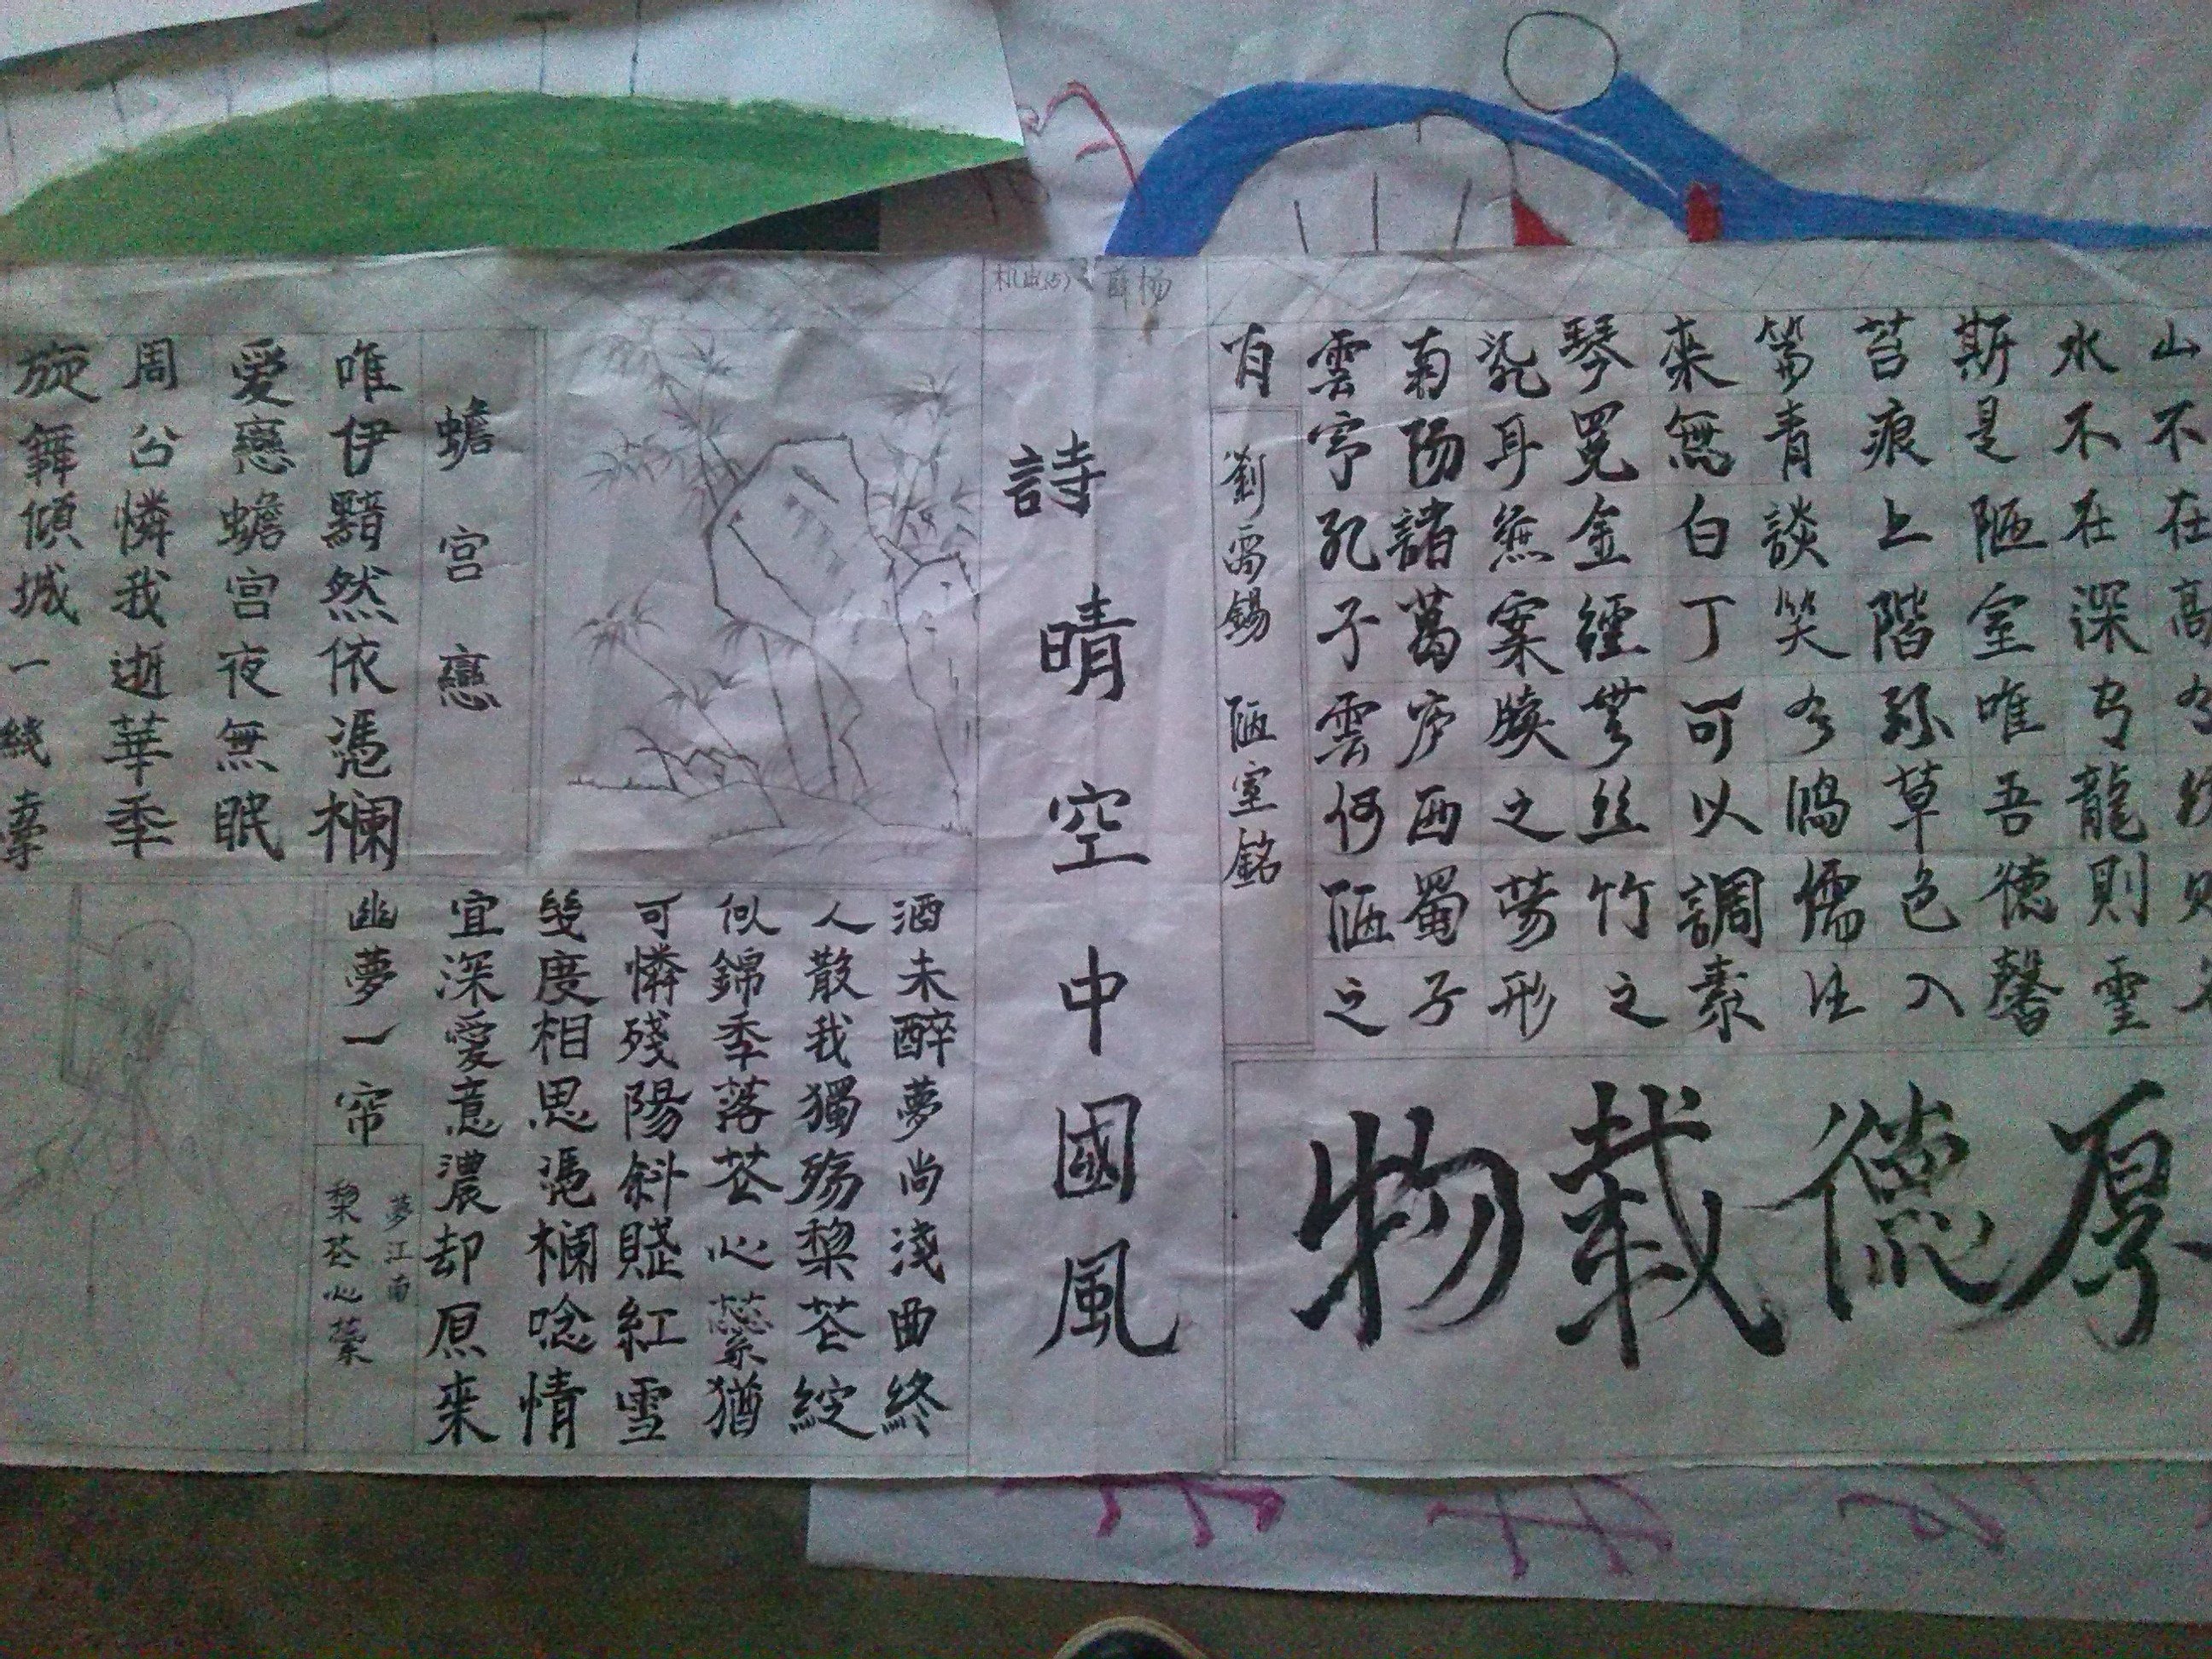 山不在高
水不在深有龍則靈
斯是陋室唯吾德馨
苔痕上階綠草色入
簾青談笑有鴻儒往
来無白丁可以調素
琴閱金經無丝竹之
亂耳無案牘之勞形
南陽諸葛庐西蜀子
雲亭孔子雲何陋之
有
劉禹錫 陋室銘
厚德載物
机电(5) 薛杨
詩晴空中國風
蟾宫戀
唯伊黯然依憑欄
愛戀蟾宫夜無眠
周公憐我逝華季
旋舞傾城一綫牽
酒未醉夢尚淺曲終
人散我獨殤梨花綻
似錦季落花心蕊猶
可憐殘陽斜賤紅雪
幾度相思憑欄唸情
宜深愛意濃却原来
幽夢一帘
夢江南
梨花心蕊